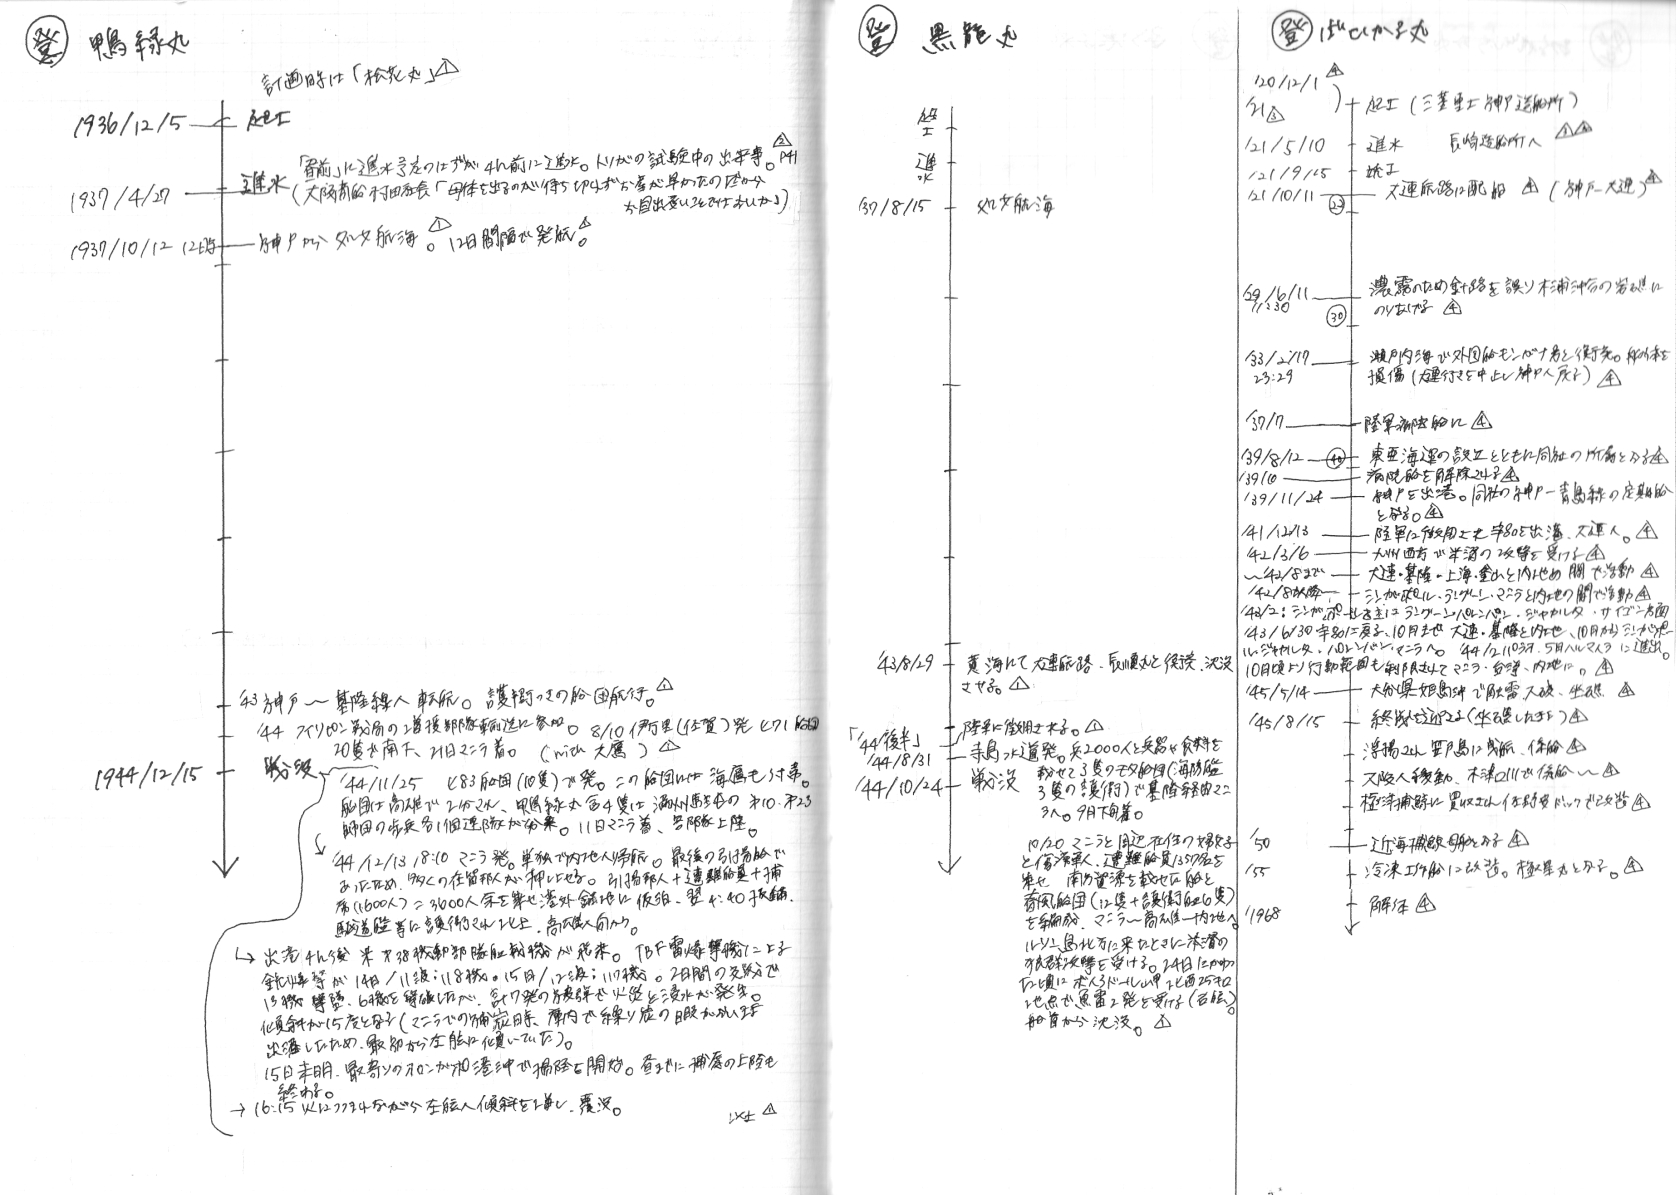 登 鴨緑丸
計画時は「松花丸」△1
1936/12/5 起工
「昼前」に進水予定のはずが 4h前に進水。トリガの試験中の出来事。△2 P41
1937/4/27 進水 (大阪商船 村田社長「母体を出るのが待ち切れずお産が早かったのだから
お目出度いことではないか」)
1937/10/12 12時 神戸から処女航海△1。12日間隔で発航△1。
'43 神戸〜基隆線へ転航。護衛つきの船団航行。△1
'44 フィリピン戦局の増援部隊輸送に参加。8/10 伊万里(佐賀)発 ヒ71船団
20隻が南下、21日マニラ着。(with 大鷹) △1
1944/12/15 戦没
'44/11/25 ヒ83船団(10隻)で発。この船団には海鷹も付帯。
船団は高雄で2分され、鴨緑丸含4隻は満州駐屯の第10・第23
師団の歩兵各1個連隊が分乗。11日マニラ着、各部隊上陸。
'44/12/13 18:10 マニラ発。単独で内地へ帰航。最後の引揚船で
あったため、多くの在留邦人が押しよせる。引揚邦人+遭難船員+捕
虜(1600人)=3600人余を乗せ港外錨地に仮泊、翌4:40抜錨、
駆逐艦等に護衛され北上、高雄へ向かう。
→ 出港4h後 米第38機動部隊艦載機が飛来。TBF雷爆撃機による
銃爆撃が14日/11波:118機。15日/12波:117機。2日間の交戦で
13機撃墜、6機を撃破したが、計7発の被弾で火災と浸水が発生。
傾斜が15度となる(マニラでの捕炭時、庫内で繰り炭の暇がないまま
出港したため、最初から左舷に傾いていた)。
15日未明、最寄りのオロンガポ港沖で揚陸を開始。昼までに捕虜の上陸も
終わる。
→ 16:15 火につつまれながら左舷へ傾斜を増し、覆没。
以上 △1
登 黒龍丸
起工
進水
'37/8/15 処女航海
'43/8/29 黄海にて大連航路・長順丸と衝突、沈没
させる。△1
「'44後半」 陸軍に徴用される。△1
'44/8/31 寺島水道発。兵2000人と兵器や食料を
載せて3隻のモタ船団(海防艦
3隻の護衛付)で基隆経由マニ
ラへ。9月下旬着。
'44/10/24 戦没
10/20 マニラと周辺在住の婦女子
と傷病軍人、遭難船員1357名を
乗せ 南方資源を載せた船と
春風船団(12隻+護衛艦6隻)
を編成、マニラ〜高雄〜内地へ。
ルソン島北方に来たときに米潜の
狼群攻撃を受ける。24日にかわっ
た頃にボヘヤドール岬北西25キロ
地点で魚雷2発を受け(右舷)
船首から沈没。△1
登 ばいかる丸
'20/12/1 △4
'21 △3 起工(三菱重工神戸造船所)
'21/5/10 進水 長崎造船所へ △1△4
'21/9/15 竣工
'21/10/11 大連航路に配船 △4 (神戸ー大連)△4
22
'29/6/11 11:30 濃霧のため針路を誤り木浦沖合の岩礁に
のりあげる △4
30
'33/2/17 23:29 瀬戸内海で外国船モンガナ号と衝突。船体を
損傷(大連行きを中止し神戸へ戻る)△4
'37/7 陸軍病院船に △4
'39/8/12 40 東亜海運の設立とともに同社の所属となる△4
'39/10 病院船を解除される△4
'39/11/24 神戸を出港。同社の神戸ー青島線の定期船
となる。△4
'41/12/13 陸軍に徴用され宇品を出港、大連へ。△4
'42/3/6 九州西方で米潜の攻撃を受ける△4
〜'42/8まで 大連・基隆・上海・釜山と内地の間で活動 △4
'42/8以降 シンガポール・ラングーン・マニラと内地の間で活動△4
'43/2:シンガポールを主にラングーン・パレンバン・ジャカルタ・サイゴン方面
'43/6/30 宇品に戻る、10月まで大連・基隆と内地、10月からシンガポー
ル・ジャカルタ・パレンバン・マニラへ。'44/2 パラオ、5月ハルマヘラに進出。
10月頃より行動範囲も制限されてマニラ・台湾・内地に。△4
'45/5/14 大分県姫島沖で触雷大破・坐礁 △4
'45/8/15 終戦を迎える(坐礁したまま)△4
浮揚され笠戸島に曳航、係船△4
大阪へ移動、木津川で係船〜△4
極洋捕鯨に買収され佐野安ドックで改装△4
'50 近海捕鯨母船となる△4
'55 冷凍工船に改造。極星丸となる。△4
1968 解体 △4